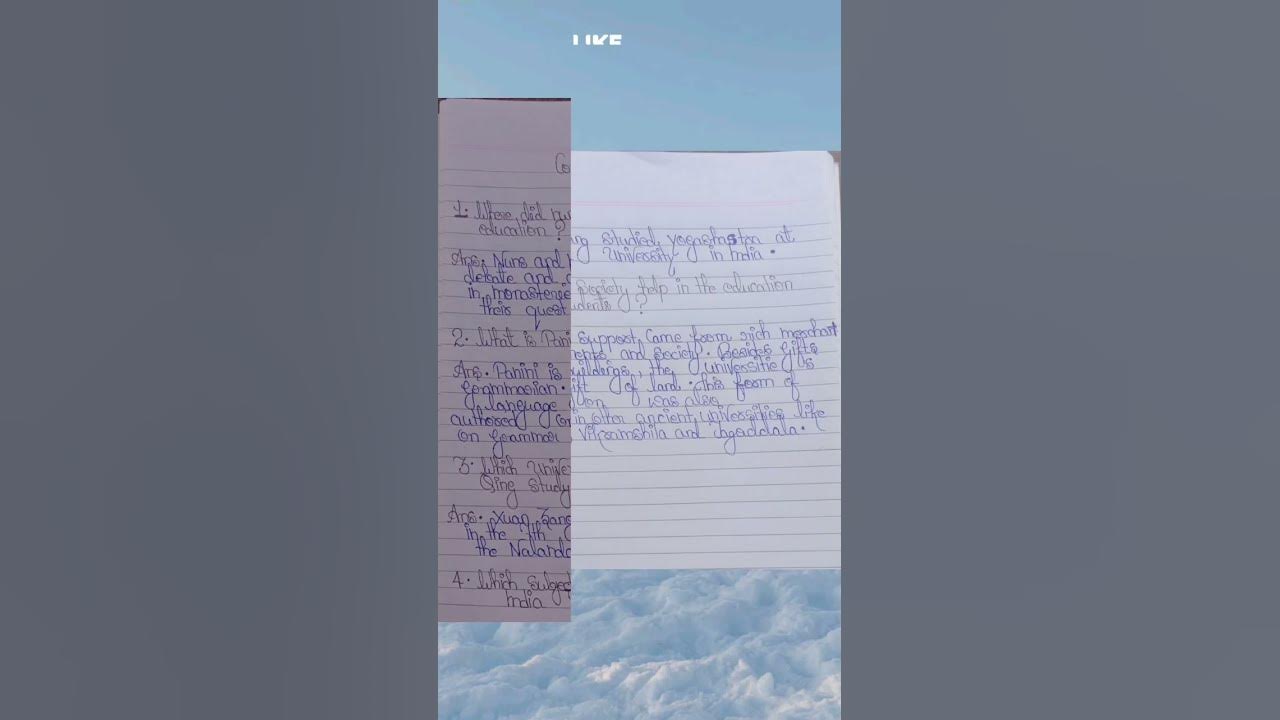 LIKE
Co
1. Where did nu
education ?
Ans. Nuns and
debate and
in monasterie
their quest
2. What is Pani
Ans. Panini is
Grammarian.
language
authored
on Grammar
3. Which Unive
Qing study
Ans. Xuan Zang
in the 7th
the Nalanda
4. Which subject
India
ng studied yogashastra at
University in India.
society help in the education
udents ?
support came from rich merchant
ents and society. Besides gifts
uildings, the universities
ift of land. This form of
on was also
in other ancient universities like
Vikramshila and Jagaddala.